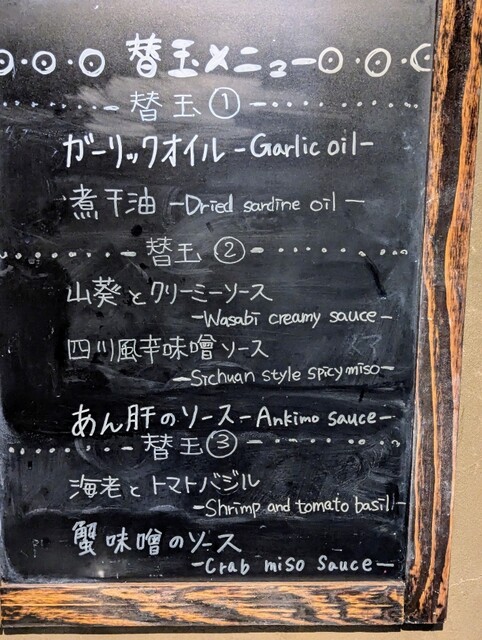 替玉メニュー
替玉①
ガーリックオイル -Garlic oil-
煮干油 -Dried sardine oil-
替玉②
山葵とクリーミーソース
-Wasabi creamy sauce-
四川風辛味噌ソース
-Sichuan style spicy miso-
あん肝のソース -Ankimo sauce-
替玉③
海老とトマトバジル
-Shrimp and tomato basil-
蟹味噌のソース
-Crab miso sauce-